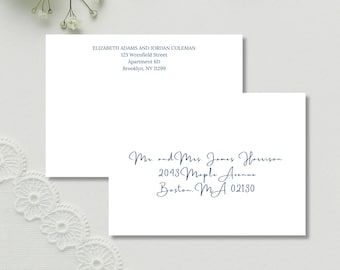 ELIZABETH ADAMS AND JORDAN COLEMAN
123 Wrenfield Street
Apartment 8D
Brooklyn, NY 11299
Mr. and Mrs. James Harrison
2043 Maple Avenue
Boston, MA 02130